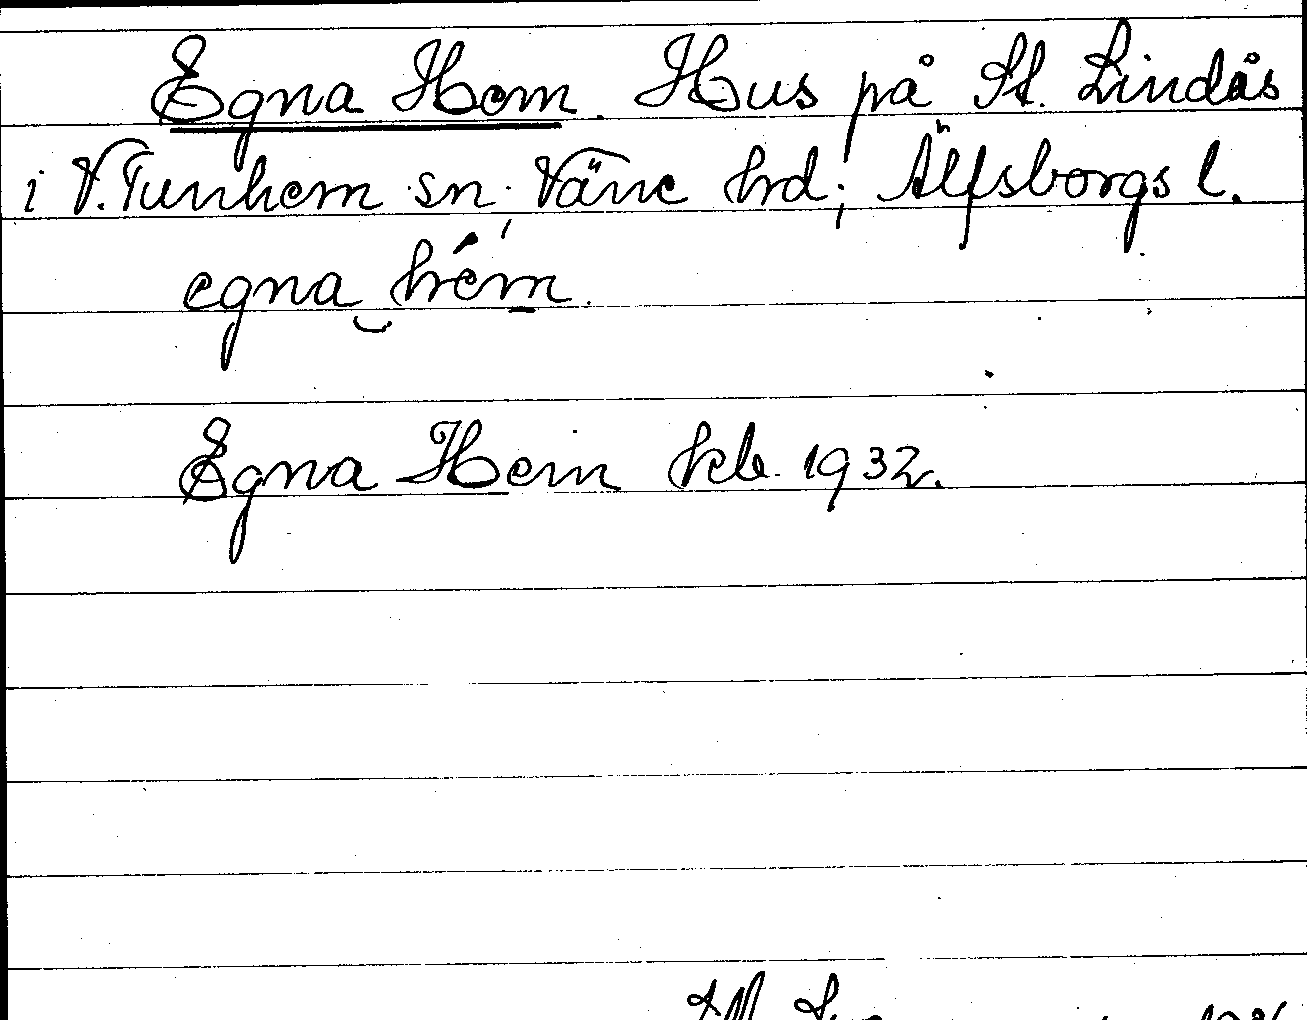 Egna Hem. Hus på St. Lindås
i V. Tunhem sn, Väne hrd; Älfsborgs l.
egna‿hém.
Egna Hem hfl. 1932.